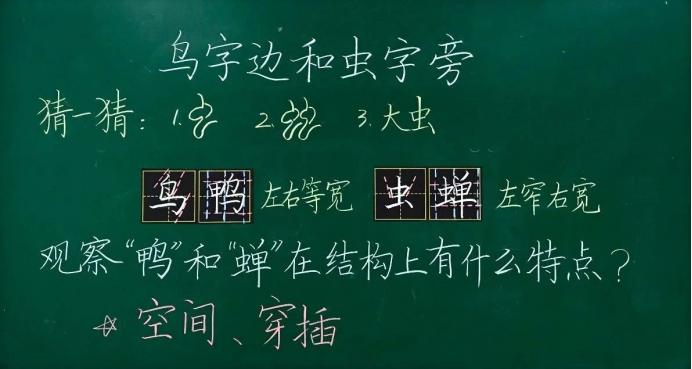 鸟字边和虫字旁
猜一猜：1. 2. 3.大虫
鸟 鸭 左右等宽 虫 蝉 左窄右宽
观察“鸭”和“蝉”在结构上有什么特点？
☆空间、穿插